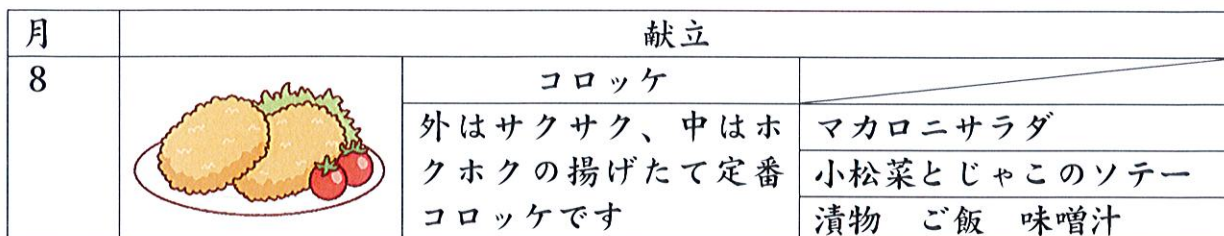 月
献立
8
コロッケ
外はサクサク、中はホ
クホクの揚げたて定番
コロッケです
マカロニサラダ
小松菜とじゃこのソテー
漬物 ご飯 味噌汁